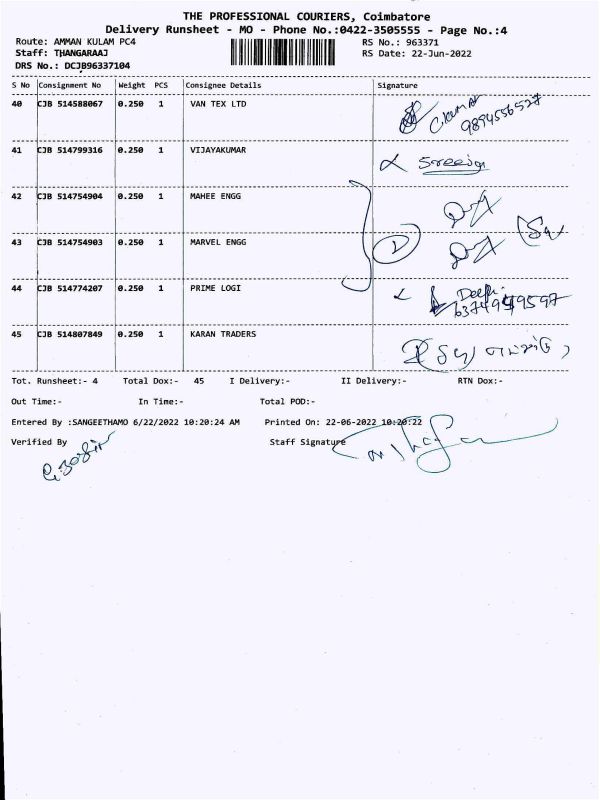 THE PROFESSIONAL COURIERS, Coimbatore
Delivery Runsheet - MO - Phone No.:0422-3505555 - Page No.:4
Route: AMMAN KULAM PC4 RS No.: 963371
Staff: THANGARAAJ RS Date: 22-Jun-2022
DRS No.: DCJB96337104
S No Consignment No Weight PCS Consignee Details Signature
40 CJB 514588067 0.250 1 VAN TEX LTD
9894556527
41 CJB 514799316 0.250 1 VIJAYAKUMAR
42 CJB 514754904 0.250 1 MAHEE ENGG
43 CJB 514754903 0.250 1 MARVEL ENGG
44 CJB 514774207 0.250 1 PRIME LOGI
45 CJB 514807849 0.250 1 KARAN TRADERS
Tot. Runsheet:- 4 Total Dox:- 45 I Delivery:- II Delivery:- RTN Dox:-
Out Time:- In Time:- Total POD:-
Entered By :SANGEETHAMO 6/22/2022 10:20:24 AM Printed On: 22-06-2022 10:20:22
Verified By Staff Signature